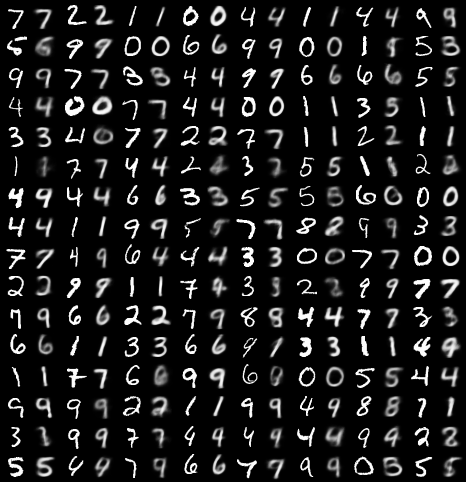 7 7 2 2 1 1 0 0 4 4 1 1 4 4 9 9
5 6 9 9 0 0 6 6 9 9 0 0 1 5 3
9 9 7 7 3 3 4 4 9 9 6 6 6 6 5 5
4 4 0 0 7 7 4 4 0 0 1 1 3 5 1 1
3 3 4 0 7 7 2 2 7 7 1 1 2 2 1 1
1 1 7 7 4 4 2 3 7 5 5 1 1 2
4 9 4 4 6 6 3 3 5 5 5 5 6 0 0 0
4 4 1 1 9 9 5 5 7 7 8 8 9 9 3 3
7 7 4 9 6 4 4 4 3 3 0 0 7 7 0 0
2 2 9 9 1 1 7 9 3 3 2 2 9 9 7 7
7 9 6 6 2 2 7 9 8 8 4 4 7 7 3 3
6 6 1 1 3 3 6 6 9 1 3 3 1 1 4 9
1 1 7 7 6 9 9 6 0 0 0 5 5 4 4
9 9 9 9 2 2 1 1 9 9 4 9 8 8 7 1
3 3 9 9 7 7 4 4 4 9 4 4 9 4 2 8
5 5 4 4 7 9 6 6 7 7 9 9 0 5 5